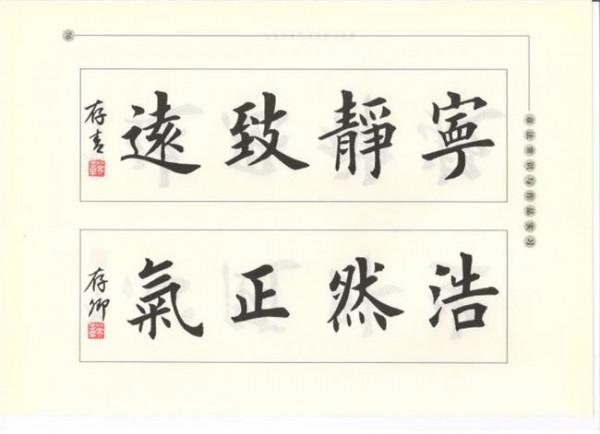 寧靜致遠
存青
浩然正氣
存卿